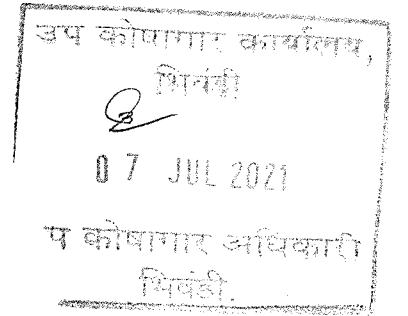 उप कोषागार कार्यालय,
भिवंडी
07 JUL 2021
प कोषागार अधिकारी
भिवंडी.